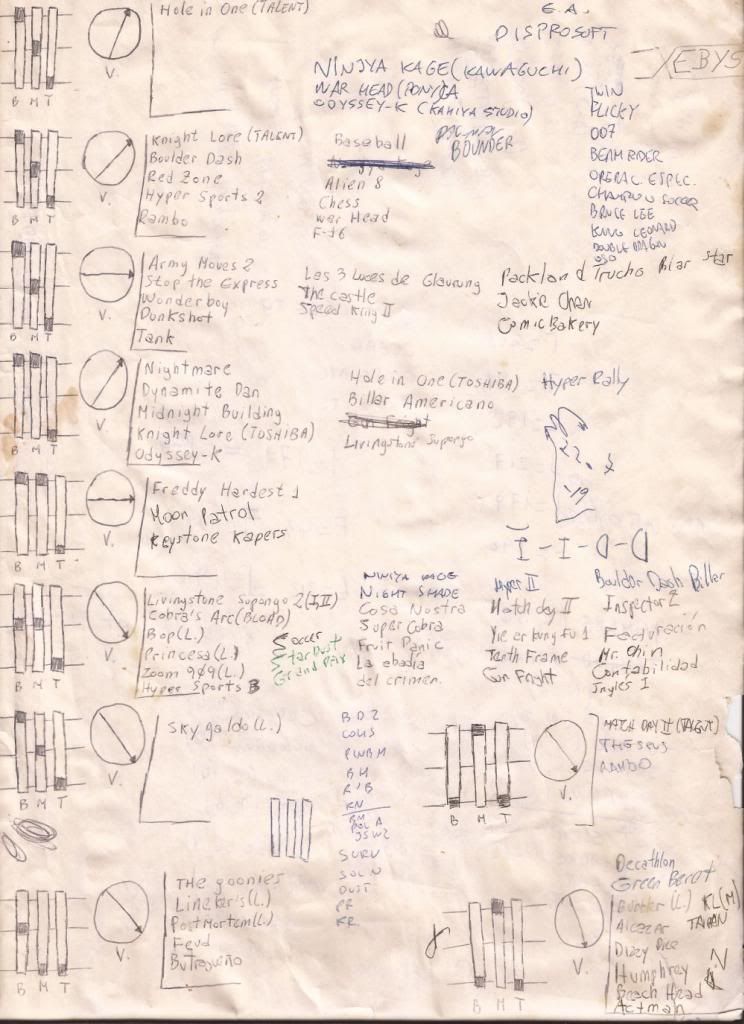 Hole in One (TALENT)
E.A.
DISPROSOFT
XEBYS
NINJYA KAGE (KAWAGUCHI)
WAR HEAD (PONYCA
ODYSSEY-K (KAHIYA STUDIO)
BOUNDER
TWIN
FLICKY
007
BEAMRIDER
OPERAC. ESPEC.
CHAMPION SOCCER
BRUCE LEE
KING LEONARD
DOUBLE DRAGON
OSO
V.
B M T
Knight Lore (TALENT)
Boulder Dash
Red Zone
Hyper Sports 2
Rambo
Baseball
Alien 8
Chess
War Head
F-16
V.
B M T
Army Moves 2
Stop the Express
Wonderboy
Dunkshot
Tank
Las 3 Luces de Glaurung
The castle
Speed King II
Packland Trucho Pilar Star
Jackie Chan
Comic Bakery
V.
B M T
Nightmare
Dynamite Dan
Midnight Building
Knight Lore (TOSHIBA)
Odyssey-K
Hole in One (TOSHIBA)
Billar Americano
Livingstone Supongo
Hyper Rally
V.
B M T
22
-19
D-D-I-I
Freddy Hardest 1
Moon Patrol
Keystone Kapers
V.
B M T
Livingstone Supongo 2 (I,II)
Cobra's Arc (BLOAD)
Bop (L.)
Princesa (L.)
Zoom 909 (L.)
Hyper Sports B
Soccer
Star Dust
Grand Prix
NINIYA KAGE
NIGHT SHADE
Cosa Nostra
Super Cobra
Fruit Panic
La abadia
del crimen.
Hyper II
Match day II
Yie er kung fu 1
Tenth Frame
Gun Fright
Bouldor Dash Biller
Inspector Z
Facturación
Mr. Chin
Contabilidad
Ingles I
V.
B M T
Sky galdo (L.)
V.
B M T
BDZ
COLIS
PWBM
BH
R'B
KN
BM
POL A
JSW2
SURV
SOLN
DUST
PR
KR
MATCH DAY II (TALENT)
THESEUS
RAMBO
V.
B M T
The goonies
Lineker's (L.)
Post Mortem (L.)
Feud
Butragueño
V.
B M T
Decathlon
Green Beret
(L.) KL(M)
Alcazar
Dizzy Dice
Humphrey
Beach Head
Actman
V.
B M T